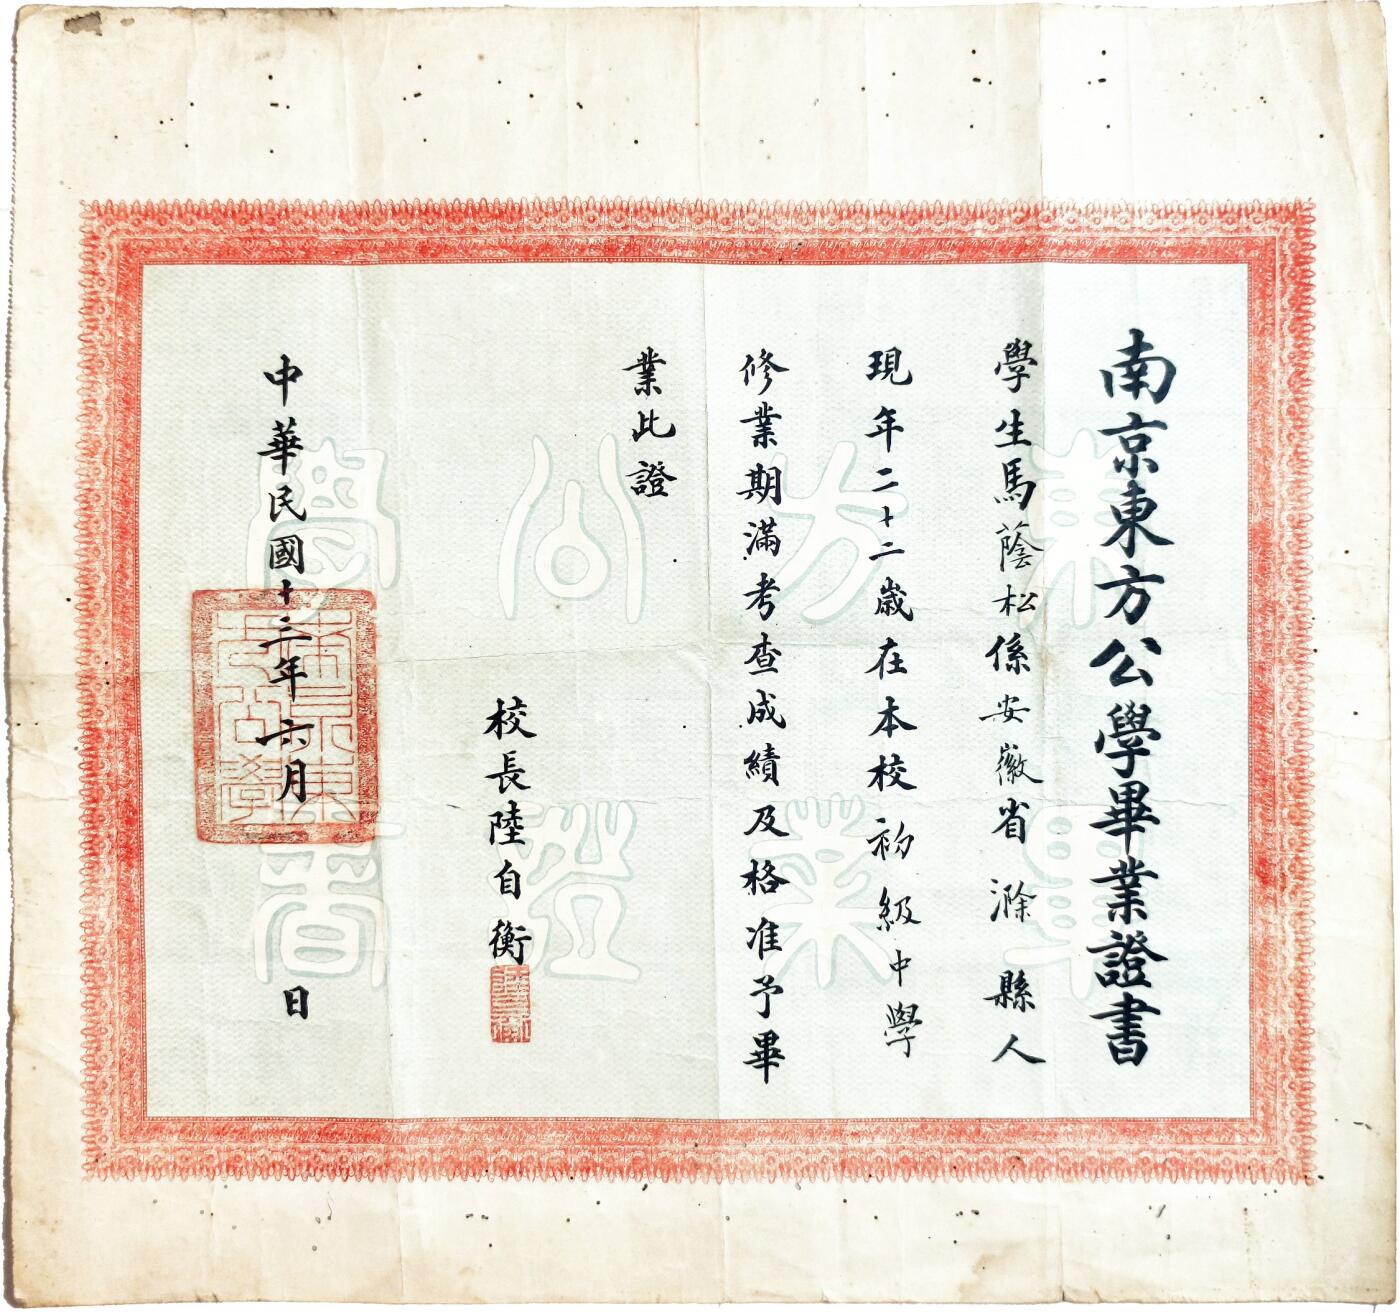 南京東方公學畢業證書
學生馬蔭松係安徽省滁縣人
現年二十二歲在本校初級中學
修業期滿考查成績及格准予畢
業此證
校長陸自衡
中華民國十三年六月日
東方公學
畢業證書
南京東方公學